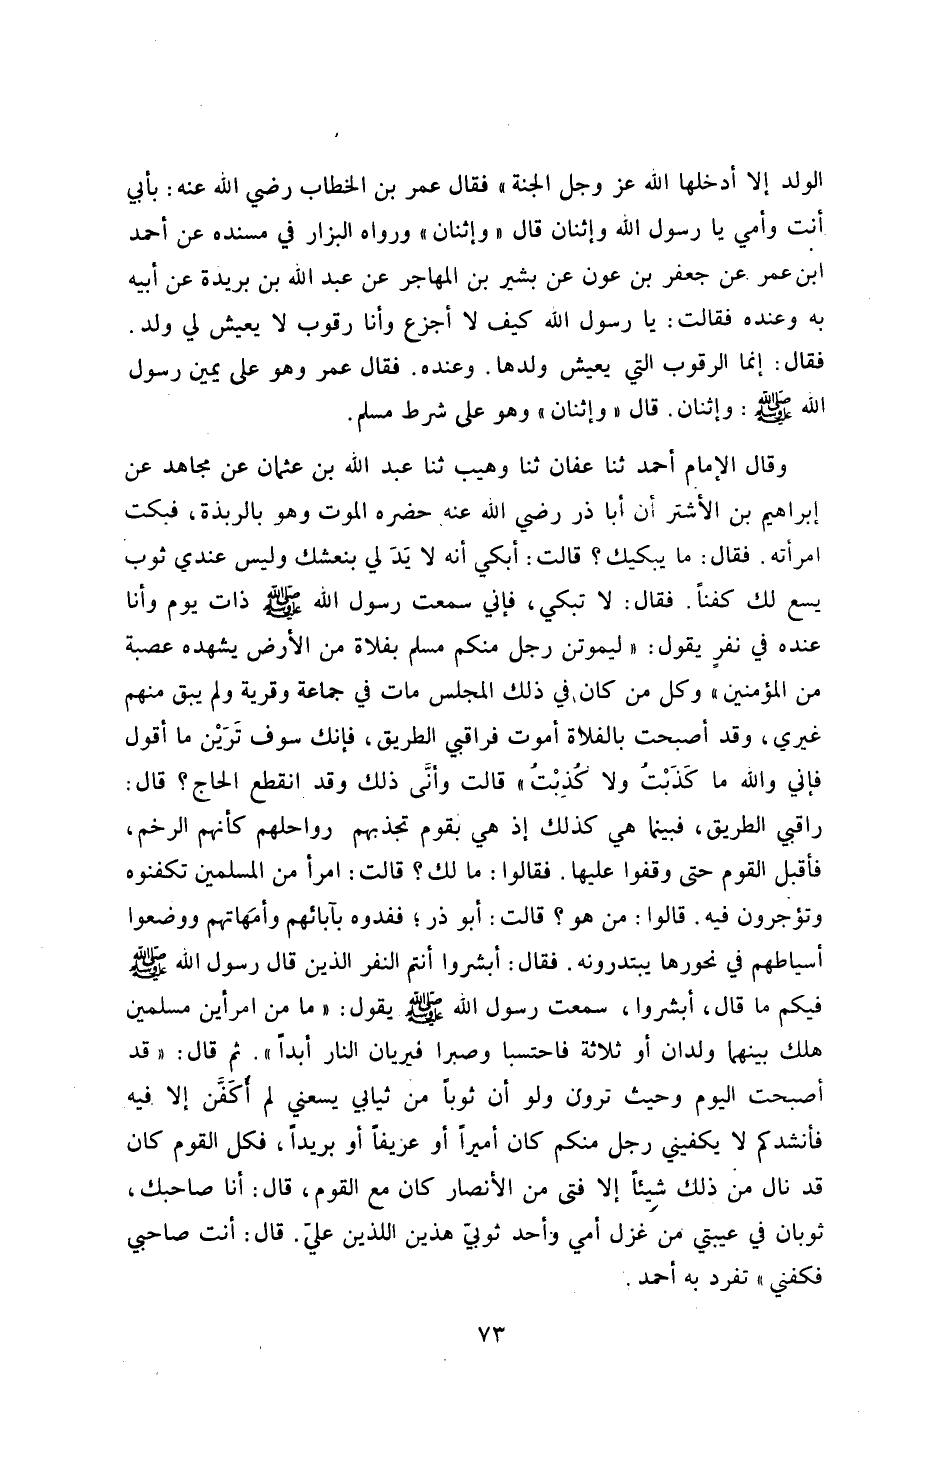 الولد إلا أدخلها الله عز وجل الجنة » فقال عمر بن الخطاب رضي الله عنه : بأبي
أنت وأمي يا رسول الله وإثنان قال « وإثنان » ورواه البزار في مسنده عن أحمد
ابن عمر عن جعفر بن عون عن بشير بن المهاجر عن عبد الله بن بريدة عن أبيه
به وعنده فقالت : يا رسول الله كيف لا أجزع وأنا رقوب لا يعيش لي ولد .
فقال : إنما الرقوب التي يعيش ولدها . وعنده . فقال عمر وهو على يمين رسول
الله ﷺ : وإثنان . قال « وإثنان » وهو على شرط مسلم .
وقال الإمام أحمد ثنا عفان ثنا وهيب ثنا عبد الله بن عثمان عن مجاهد عن
إبراهيم بن الأشتر أن أبا ذر رضي الله عنه حضره الموت وهو بالربذة ، فبكت
امرأته . فقال : ما يبكيك ؟ قالت : أبكي أنه لا يَدَ لي بنعشك وليس عندي ثوب
يسع لك كفناً . فقال : لا تبكي ، فإني سمعت رسول الله ﷺ ذات يوم وأنا
عنده في نفرٍ يقول : « ليموتن رجل منكم مسلم بفلاة من الأرض يشهده عصبة
من المؤمنين » وكل من كان في ذلك المجلس مات في جماعة وقرية ولم يبق منهم
غيري ، وقد أصبحت بالفلاة أموت فراقبي الطريق ، فإنك سوف تَرَيْن ما أقول
فإني والله ما كَذَبْتُ ولا كُذِبْتُ » قالت وأنَّى ذلك وقد انقطع الحاج ؟ قال :
راقبي الطريق ، فبينما هي كذلك إذ هي بقوم تجذبهم رواحلهم كأنهم الرخم ،
فأقبل القوم حتى وقفوا عليها . فقالوا : ما لك ؟ قالت : امرأ من المسلمين تكفنوه
وتؤجرون فيه . قالوا : من هو ؟ قالت : أبو ذر ؛ ففدوه بآبائهم وأمهاتهم ووضعوا
أسياطهم في نحورها يبتدرونه . فقال : أبشروا أنتم النفر الذين قال رسول الله ﷺ
فيكم ما قال ، أبشروا ، سمعت رسول الله ﷺ يقول : « ما من امرأين مسلمين
هلك بينهما ولدان أو ثلاثة فاحتسبا وصبرا فيريان النار أبداً » . ثم قال : « قد
أصبحت اليوم وحيث ترون ولو أن ثوباً من ثيابي يسعني لم أُكَفَّن إلا فيه
فأنشدكم لا يكفيني رجل منكم كان أميراً أو عريفاً أو بريداً ، فكل القوم كان
قد نال من ذلك شيئاً إلا فتى من الأنصار كان مع القوم ، قال : أنا صاحبك ،
ثوبان في عيبتي من غزل أمي وأحد ثوبيّ هذين اللذين عليّ . قال : أنت صاحبي
فكفني » تفرد به أحمد .
٧٣